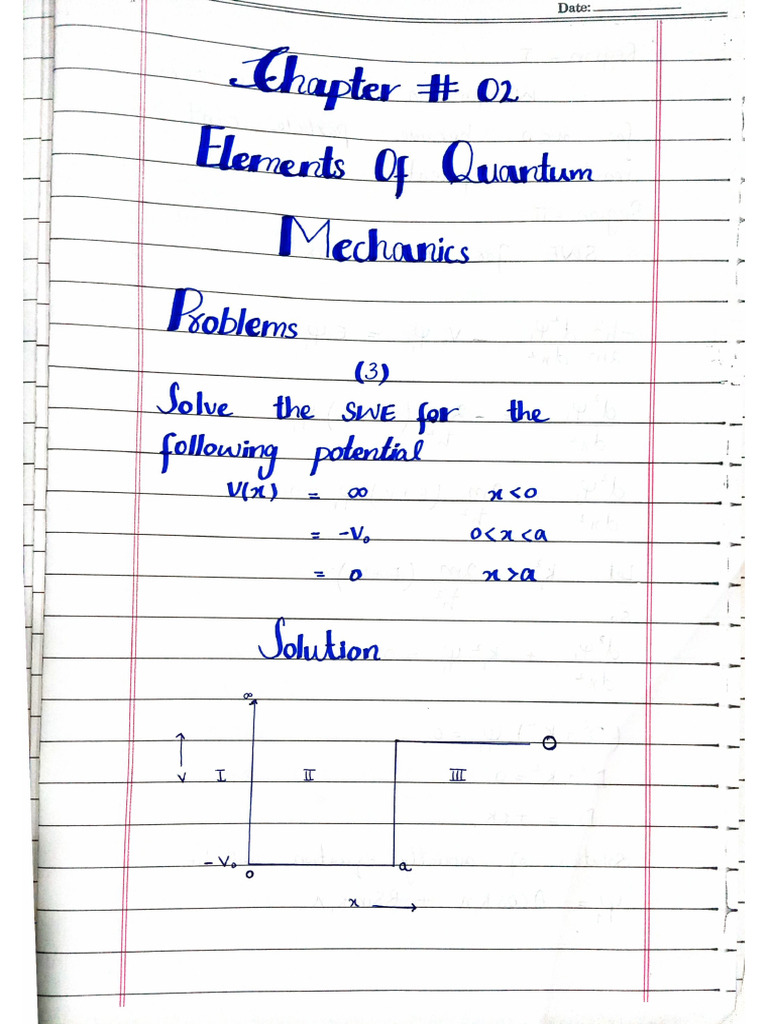 Date:
Chapter # 02
Elements Of Quantum
Mechanics
Problems
(3)
Solve the SWE for the
following potential
V(x) = ∞ x<0
= -V₀ 0<x<a
= 0 x>a
Solution
∞
0
V I II III
-V₀ a
0
x